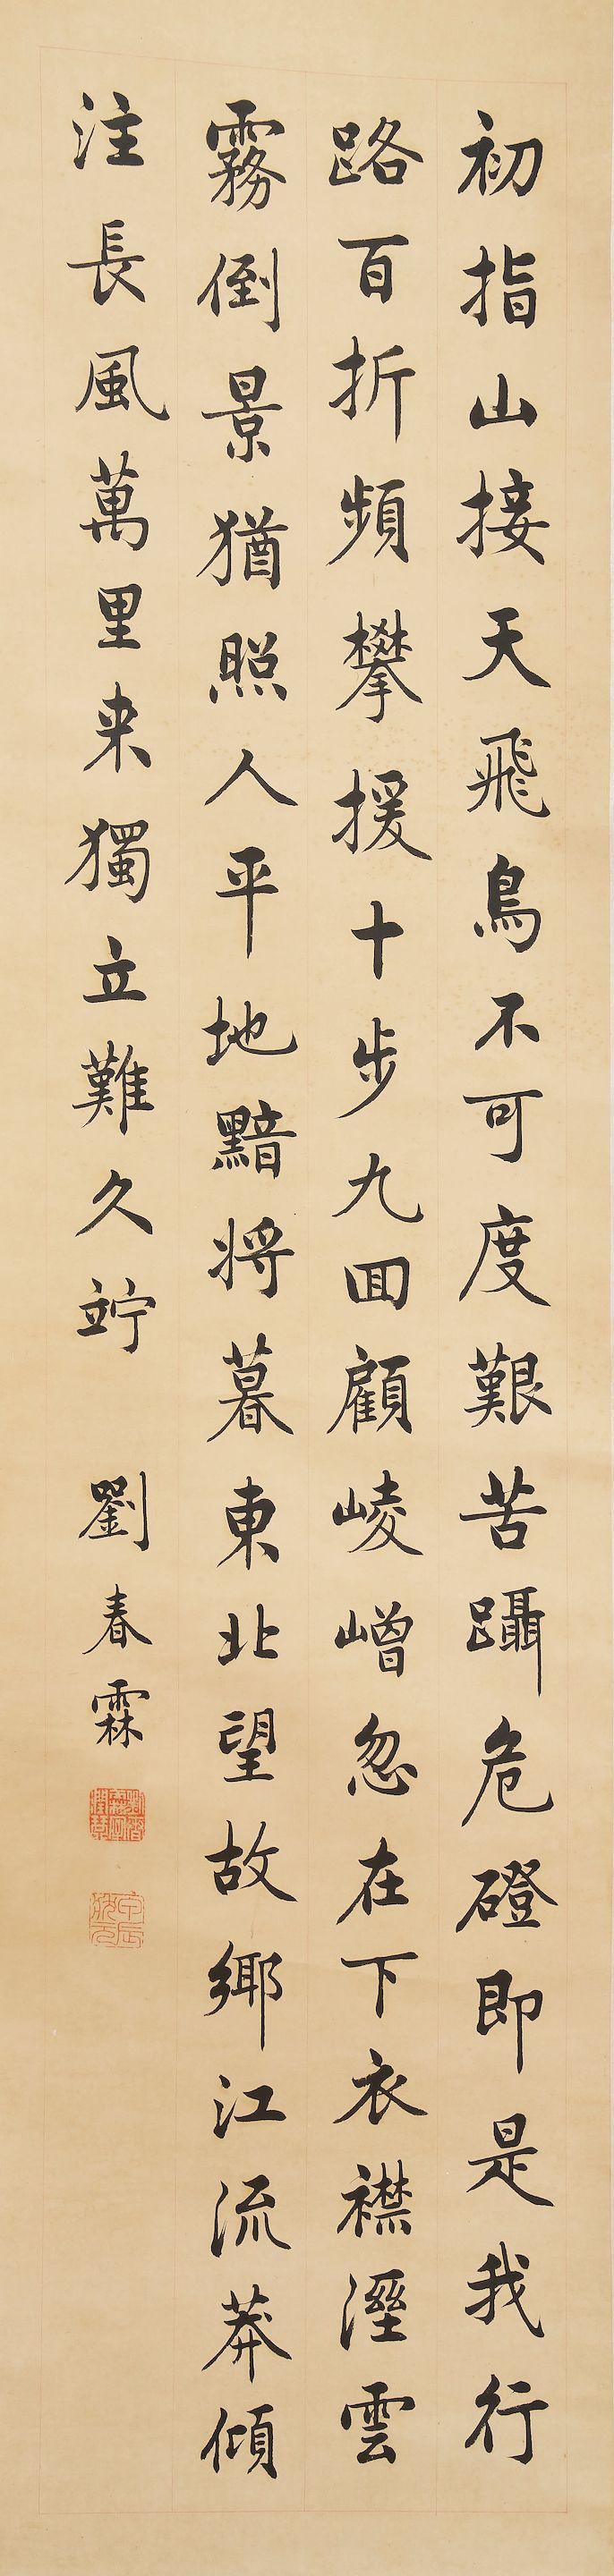 初指山接天飛鳥不可度艱苦躡危磴即是我行
路百折頻攀援十步九回顧崚嶒忽在下衣襟溼雲
霧倒景猶照人平地黯將暮東北望故鄉江流莽傾
注長風萬里来獨立難久竚
劉春霖